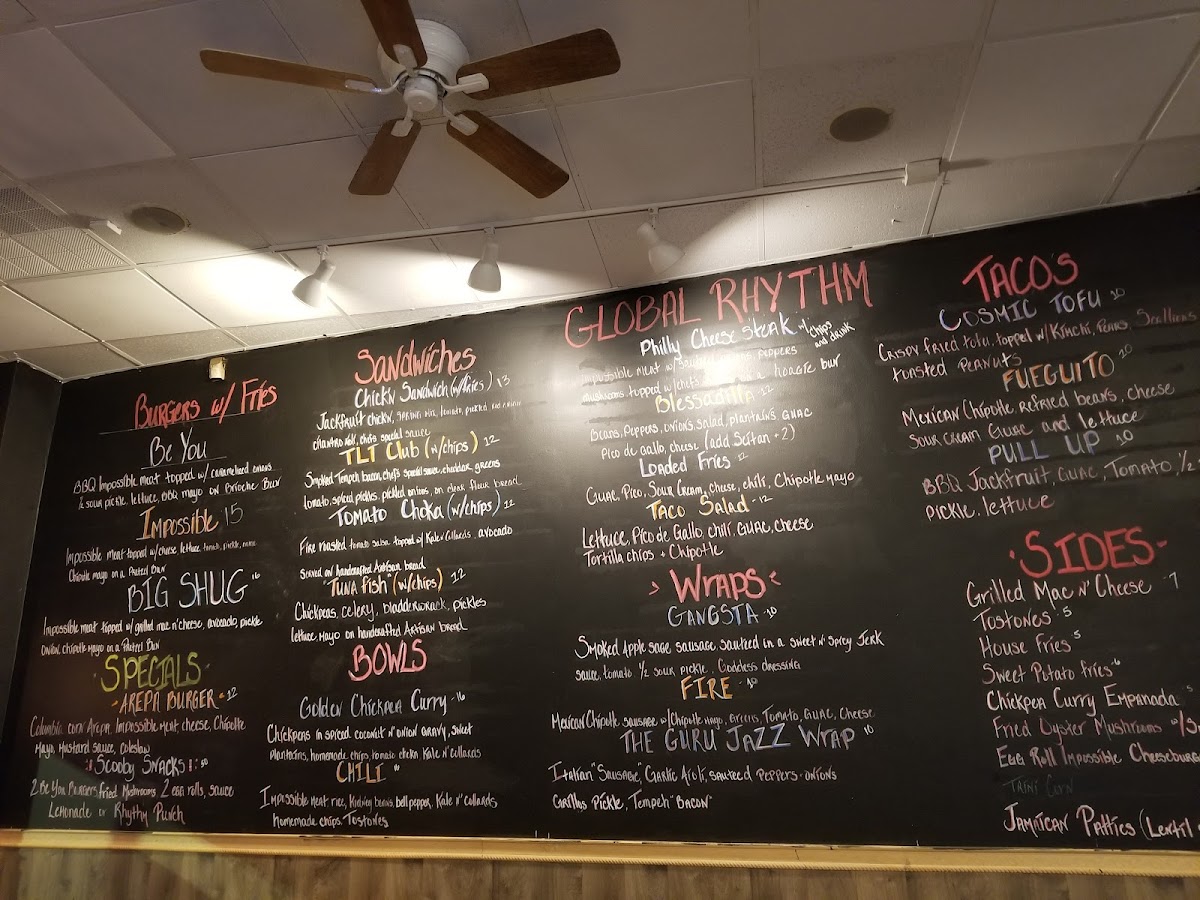 BURGERS w/ Fries
Be You
BBQ Impossible meat topped w/ caramelized onions
½ sour pickle, lettuce, BBQ mayo on Brioche Bun
Impossible 15
Impossible meat topped w/cheese lettuce tomato, pickle,
Chipotle mayo on a Pretzel Bun
BIG SHUG 16
Impossible meat topped w/ grilled mac n' cheese, avocado, pickle
onion, chipotle mayo on a Pretzel Bun
SPECIALS
AREPA BURGER 12
Colombia corn Arepa, Impossible meat, cheese, Chipotle
Mayo, Mustard sauce, coleslaw
Scooby Snacks
2 Be You Burgers, fried Mushrooms 2 egg rolls, sauce
Lemonade or Rhythy Punch
Sandwiches
Chick'n Sandwich (w/fries) 13
Jackfruit chick'n, tomato, pickled red onion
chef's special sauce
TLT Club (w/chips) 12
Smoked Tempeh bacon, chef's special sauce, cheddar, greens
tomato, spiced pickles, pickled onions, on bread
Tomato Choka (w/chips) 12
Fire roasted tomato salsa topped w/ Kale n' Collards, avocado
Served on handcrafted Artisan bread
"Tuna Fish" (w/chips) 12
Chickpeas, celery, bladderwrack, pickles
lettuce, Mayo on handcrafted Artisan bread
BOWLS
Golden Chickpea Curry -16
Chickpeas in spiced coconut n' onion gravy, sweet
Plantains, homemade chips, tomato choka, Kale n' Collards
CHILI
Impossible meat, rice, Kidney beans, bell pepper, Kale n' Collards
homemade chips, Tostones
GLOBAL RHYTHM
Philly Cheese Steak w/ chips and drink
Impossible meat w/ peppers
mushrooms topped w/chef's hoagie bun
Blessadilla -12
Beans, Peppers, onions, salad, plantains, guac
Pico de Gallo, cheese (add Seitan +2)
Loaded Fries -12
Guac, Pico, Sour Cream, cheese, chili, Chipotle mayo
Taco Salad -12
Lettuce, Pico de Gallo, chili, Guac, cheese
Tortilla chips + Chipotle
Wraps
GANGSTA -10
Smoked Apple sage sausage, sautéed in a sweet n' Spicy Jerk
sauce, tomato ½ sour pickle, Goddess dressing
FIRE -10
Mexican Chipotle sausage w/Chipotle mayo, Greens, Tomato, Guac, Cheese
THE GURU JAZZ WRAP 10
Italian "Sausage", Garlic Aioli, sautéed peppers + onions
Garlic Pickle, Tempeh "Bacon"
TACO'S
COSMIC TOFU 10
Crispy fried tofu, topped w/ Kimchi, Pears, Scallions
toasted peanuts
FUEGUITO 10
Mexican Chipotle, refried beans, cheese
sour cream Guac and lettuce
PULL UP 10
BBQ Jackfruit, Guac, Tomato, ½
pickle, lettuce
SIDES
Grilled Mac n' Cheese -7
Tostones -5
House Fries 5
Sweet Potato fries -6
Chickpea Curry Empanada -5
Fried Oyster Mushrooms
Egg Roll Impossible Cheeseburg
Trini Corn
Jamaican Patties (Lentil